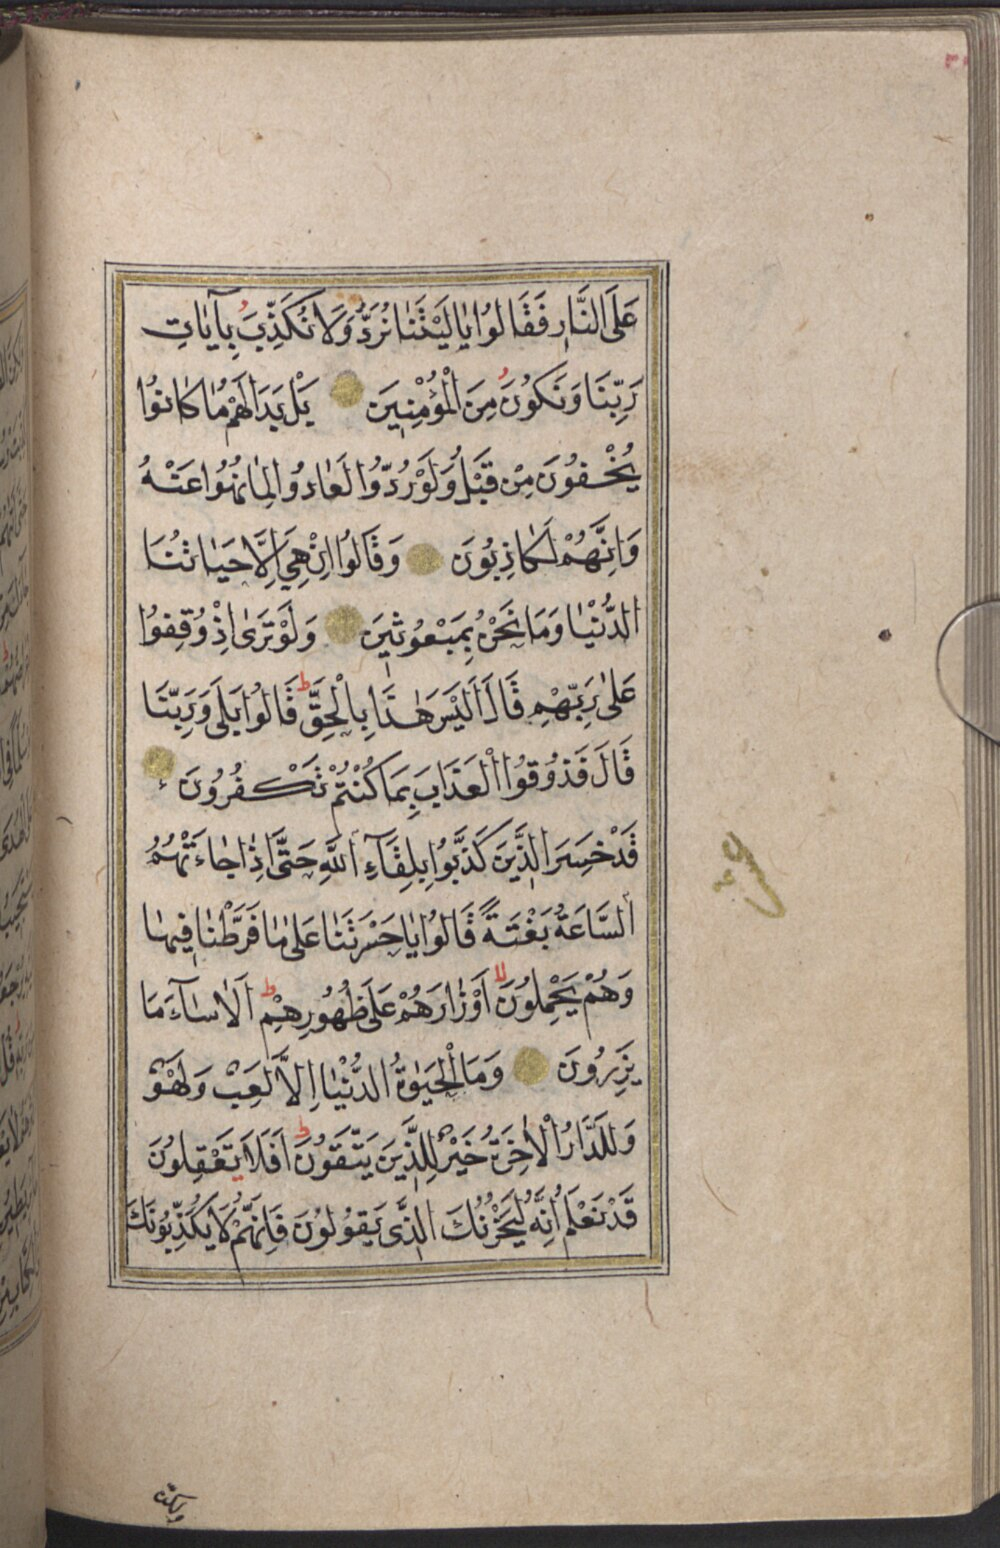 عَلَى النَّارِ فَقَالُوا يَا لَيْتَنَا نُرَدُّ وَلَا نُكَذِّبَ بِآيَاتِ
رَبِّنَا وَنَكُونَ مِنَ الْمُؤْمِنِينَ بَلْ بَدَا لَهُمْ مَا كَانُوا
يُخْفُونَ مِنْ قَبْلُ وَلَوْ رُدُّوا لَعَادُوا لِمَا نُهُوا عَنْهُ
وَاِنَّهُمْ لَكَاذِبُونَ وَقَالُوا اِنْ هِيَ اِلَّا حَيَاتُنَا
الدُّنْيَا وَمَا نَحْنُ بِمَبْعُوثِينَ وَلَوْ تَرٰى اِذْ وُقِفُوا
عَلٰى رَبِّهِمْ قَالَ اَلَيْسَ هٰذَا بِالْحَقِّ ط قَالُوا بَلٰى وَرَبِّنَا
قَالَ فَذُوقُوا الْعَذَابَ بِمَا كُنْتُمْ تَكْفُرُونَ
قَدْ خَسِرَ الَّذِينَ كَذَّبُوا بِلِقَآءِ اللّٰهِ حَتّٰى اِذَا جَاءَتْهُمُ
السَّاعَةُ بَغْتَةً قَالُوا يَا حَسْرَتَنَا عَلٰى مَا فَرَّطْنَا فِيهَا
وَهُمْ يَحْمِلُونَ لا اَوْزَارَهُمْ عَلٰى ظُهُورِهِمْ ط اَلَا سَآءَ مَا
يَزِرُونَ وَمَا الْحَيٰوةُ الدُّنْيَا اِلَّا لَعِبٌ وَلَهْوٌ
وَلَلدَّارُ الْاٰخِرَةُ خَيْرٌ لِلَّذِينَ يَتَّقُونَ ط اَفَلَا تَعْقِلُونَ
قَدْ نَعْلَمُ اِنَّهُ لَيَحْزُنُكَ الَّذِى يَقُولُونَ فَاِنَّهُمْ لَا يُكَذِّبُونَكَ
عشر
ولكن